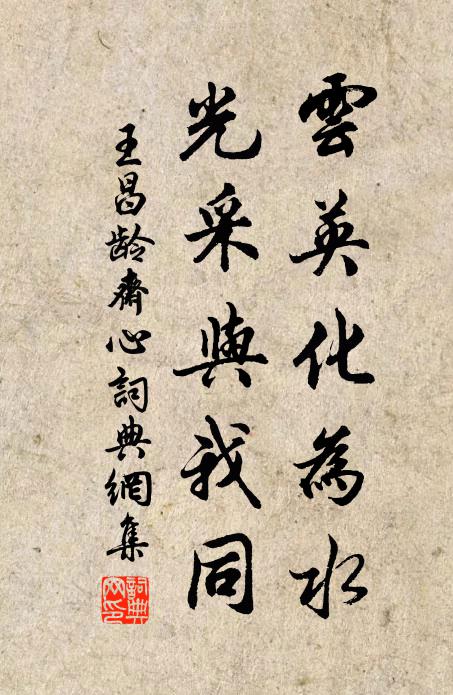 雲英化為水
光采與我同
王昌齡齋心詞典網集
詞典網印